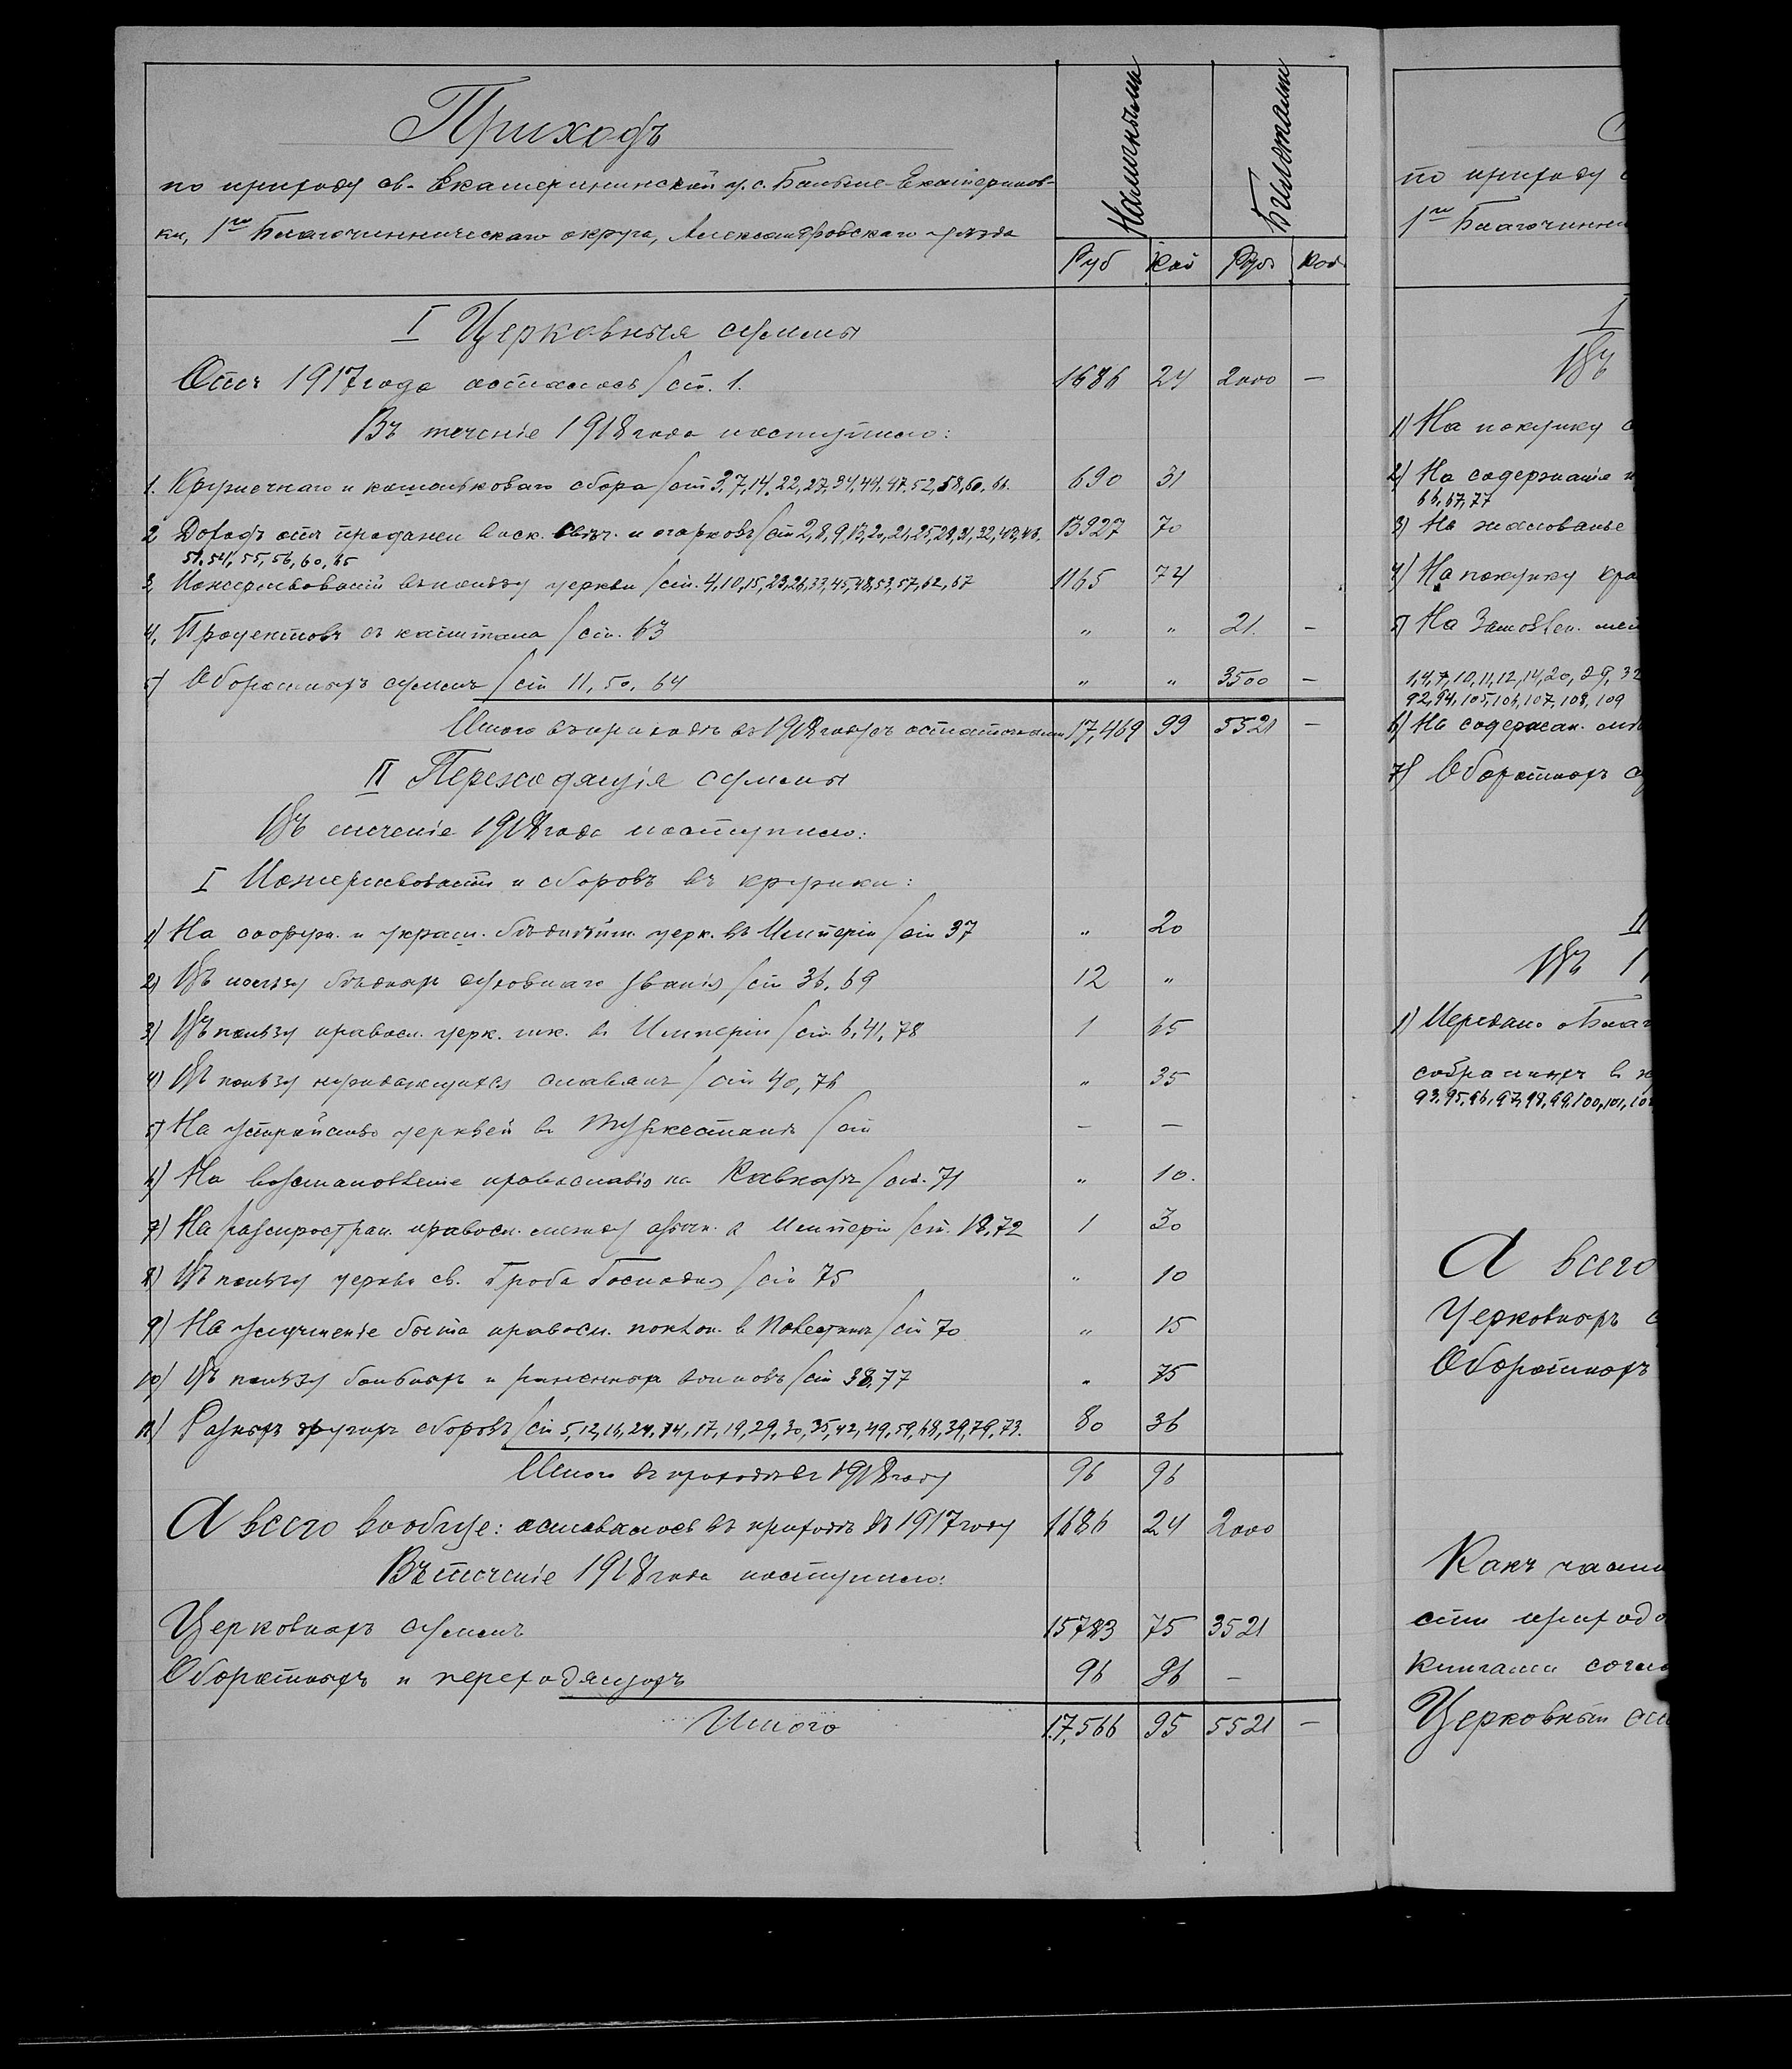 Приходъ
по приходу св. Екатерининской ц. с. Больше-Екатеринов-
ки, 1го Благочинническаго округа, Александровскаго уѣзда
Наличными
Билетами
Руб Коп Руб Коп
I Церковныя суммы
Отъ 1917 года осталось /ст. 1. 1686 24 2000 —
Въ теченіе 1918 года поступило:
1. Кружечнаго и кошельковаго сбора /ст 3,7,14,22,27,34,44,47,52,58,60,61. 690 31
2 Доходъ отъ продажи воск. свѣч. и огарковъ /ст 2,8,9,13,20,21,25,28,31,32,43,46. 13927 70
51,54,55,56,60,65
3, Пожертвованій въ пользу церкви /ст. 4,10,15,23,26,33,45,48,53,57,62,67 1165 74
4, Процентовъ съ капитала /ст. 63 „ „ 21. —
5) Оборотныхъ суммъ /ст 11, 50, 64 „ „ 3500 —
Итого въ приходѣ въ 1918 году съ остаточными 17,469 99 5521 —
II Переходящія суммы
Въ теченіе 1918 года поступило:
I Пожертвованій и сборовъ въ кружки:
1) На сооруж. и украш. бѣднѣйш. церк. въ Имперіи /ст 37 „ 20
2) Въ пользу бѣдныхъ духовнаго званія /ст 36, 69 12 „
3) Въ пользу правосл. церк. шк. в Имперіи /ст. 6,41,78 1 65
4) Въ пользу нуждающихся славянъ /ст 40, 76 „ 35
5) На устройство церквей въ Туркестанѣ /ст — —
6) На возстановленіе православія на Кавказѣ /ст. 71 „ 10.
7) На распростран. правосл. между языч. в Имперіи /ст. 18,72 1 30
8) Въ пользу церкви св. Гроба Господня /ст 75 „ 10
9) На улучшеніе быта правосл. поклон. в Палестинѣ /ст 70 „ 15
10) Въ пользу больныхъ и раненныхъ воиновъ /ст 38,77 „ 75
11) Разныхъ другихъ сборовъ /ст 5,12,16,24,74,17,19,29,30,35,42,49,59,68,39,79,73. 80 36
Итого въ приходѣ въ 1918 году 96 96
А всего вообще: оставалось въ приходѣ въ 1917 году 1686 24 2000
Въ теченіе 1918 года поступило:
Церковныхъ суммъ 15783 75 3521
Оборотныхъ и переходящихъ 96 96 —
Итого 17,566 95 5521 —
по приходу
1го Благочинни
I
Въ
1) На покупку
2) На содержаніе
66,67,77
3) На жалованье
4) На покупку
5) На
1,4,7,10,11,12,14,20,29,32
92,94,105,106,107,108,109
6) На содержан.
7) Оборотныхъ
II
Въ 1
1) Передано о. Благ
собранныхъ в
93,95,96,97,98,99,100,101,10
А всего
Церковныхъ
Оборотныхъ
Какъ
сти приходо
книгами
Церковный